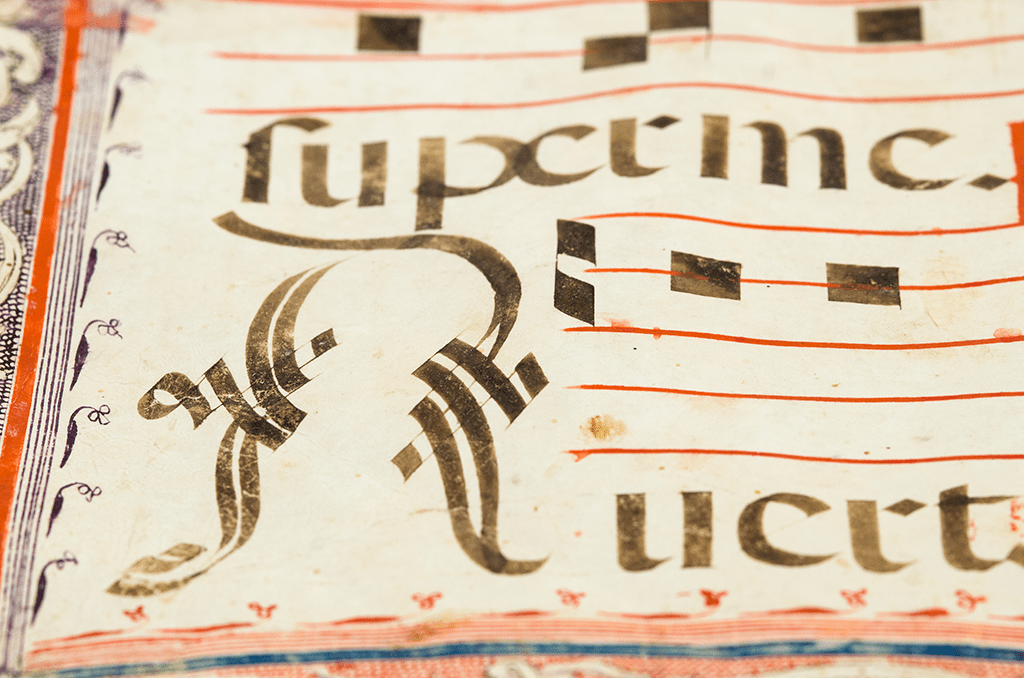 ſuper me.
Auert